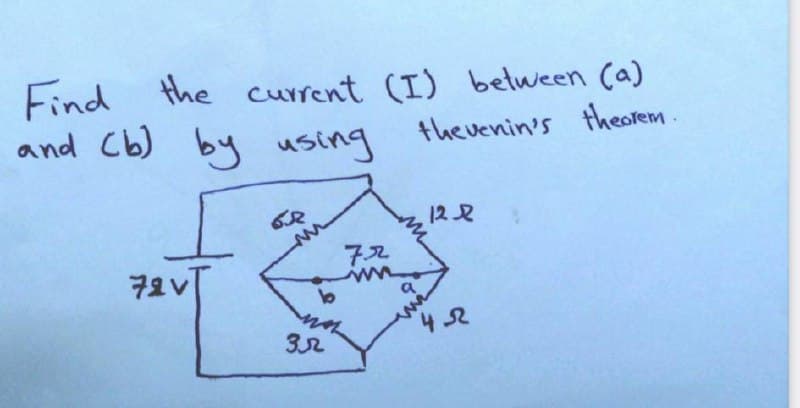 Find the current (I) between (a)
and (b) by using thevenin's theorem.
6Ω
12Ω
7Ω
72V
b
a
3Ω
4Ω